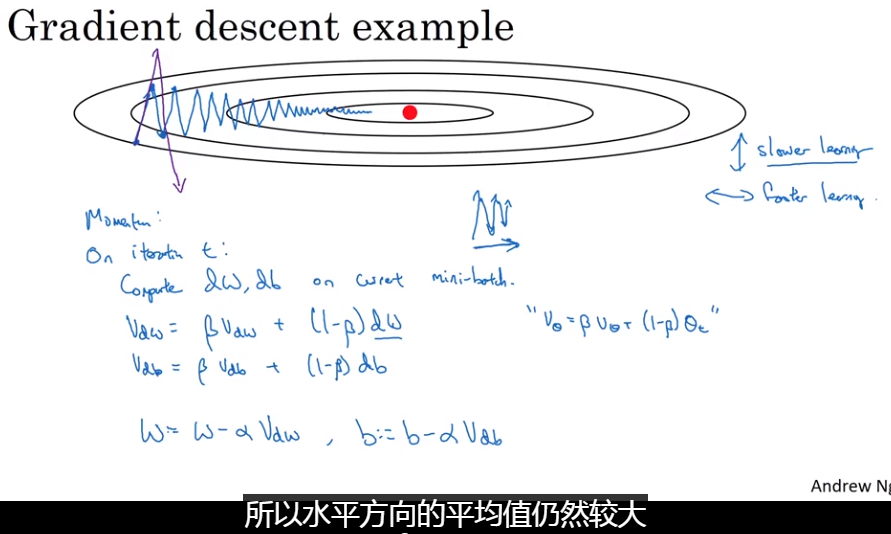 Gradient descent example
↕ slower learning
↔ faster learning.
Momentum:
On iteration t:
Compute dW, db on current mini-batch.
Vdw = βVdw + (1-β)dW
"Vθ = βVθ + (1-β)θt"
Vdb = βVdb + (1-β)db
W := W - αVdw , b := b - αVdb
Andrew Ng
所以水平方向的平均值仍然较大